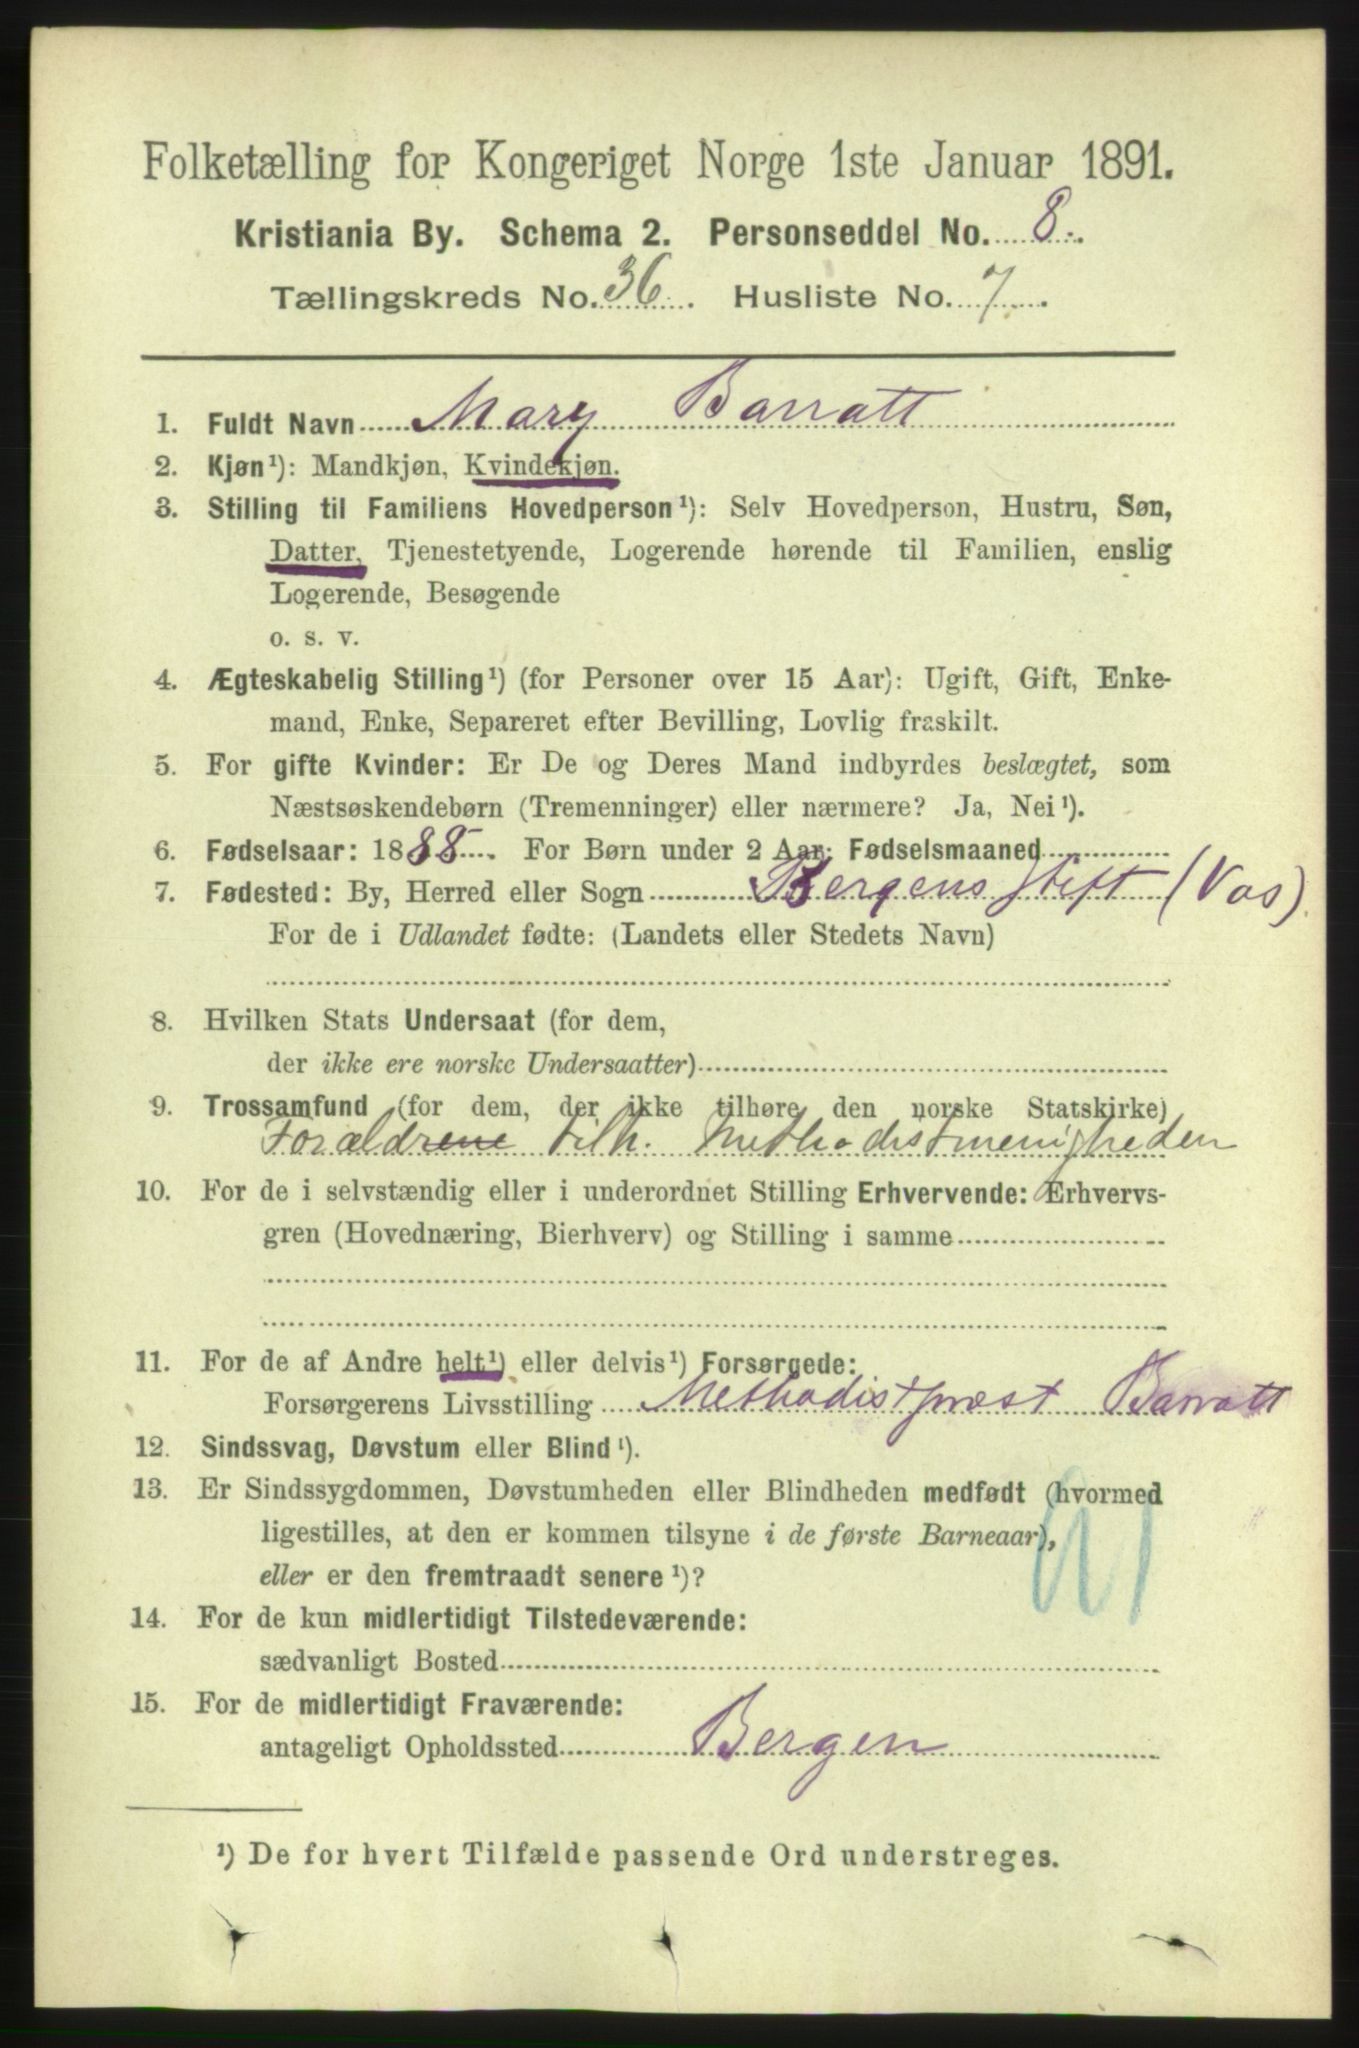 Folketælling for Kongeriget Norge 1ste Januar 1891.
Kristiania By. Schema 2. Personseddel No. 8.
Tællingskreds No. 36. Husliste No. 7.
1. Fuldt Navn Mary Barratt
2. Kjøn¹): Mandkjøn, Kvindekjøn.
3. Stilling til Familiens Hovedperson¹): Selv Hovedperson, Hustru, Søn,
Datter, Tjenestetyende, Logerende hørende til Familien, enslig
Logerende, Besøgende
o. s. v.
4. Ægteskabelig Stilling¹) (for Personer over 15 Aar): Ugift, Gift, Enke-
mand, Enke, Separeret efter Bevilling, Lovlig fraskilt.
5. For gifte Kvinder: Er De og Deres Mand indbyrdes beslægtet, som
Næstsøskendebørn (Tremenninger) eller nærmere? Ja, Nei¹).
6. Fødselsaar: 1888. For Børn under 2 Aar: Fødselsmaaned
7. Fødested: By, Herred eller Sogn Bergens Stift (Vos)
For de i Udlandet fødte: (Landets eller Stedets Navn)
8. Hvilken Stats Undersaat (for dem,
der ikke ere norske Undersaatter)
9. Trossamfund (for dem, der ikke tilhøre den norske Statskirke)
Forældrene tilh. Methodistmenigheden
10. For de i selvstændig eller i underordnet Stilling Erhvervende: Erhvervs-
gren (Hovednæring, Bierhverv) og Stilling i samme
11. For de af Andre helt¹) eller delvis¹) Forsørgede:
Forsørgerens Livsstilling Methodistpræst Barratt
12. Sindssvag, Døvstum eller Blind¹).
13. Er Sindssygdommen, Døvstumheden eller Blindheden medfødt (hvormed
ligestilles, at den er kommen tilsyne i de første Barneaar),
eller er den fremtraadt senere¹)?
14. For de kun midlertidigt Tilstedeværende:
sædvanligt Bosted
15. For de midlertidigt Fraværende:
antageligt Opholdssted Bergen
¹) De for hvert Tilfælde passende Ord understreges.